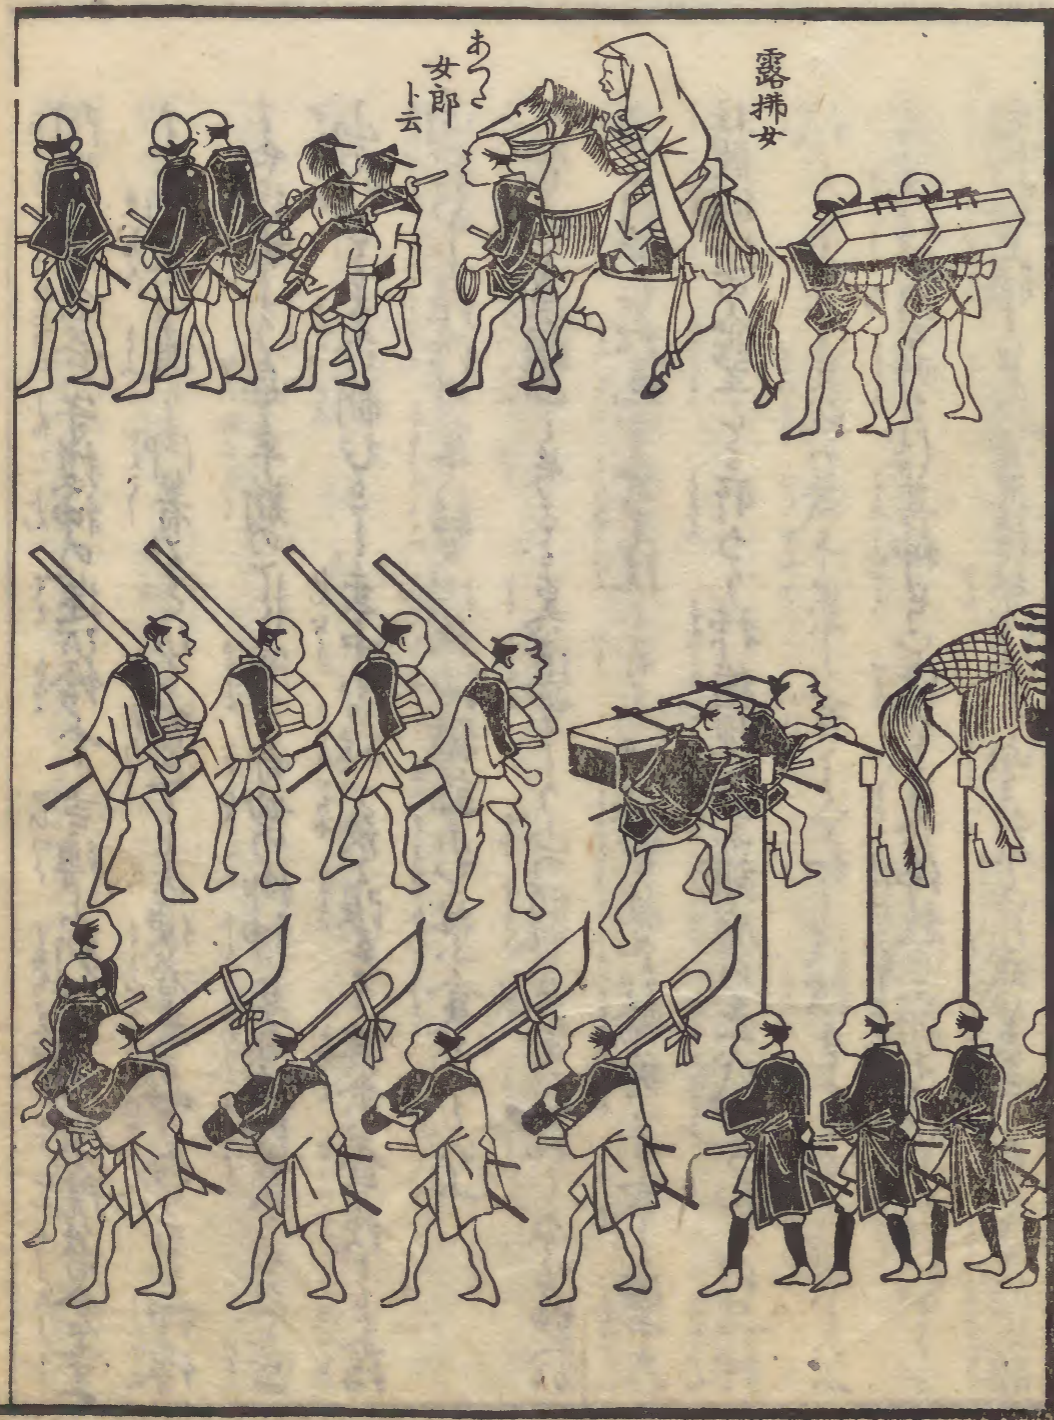 露払女
あつた
女郎
ト云